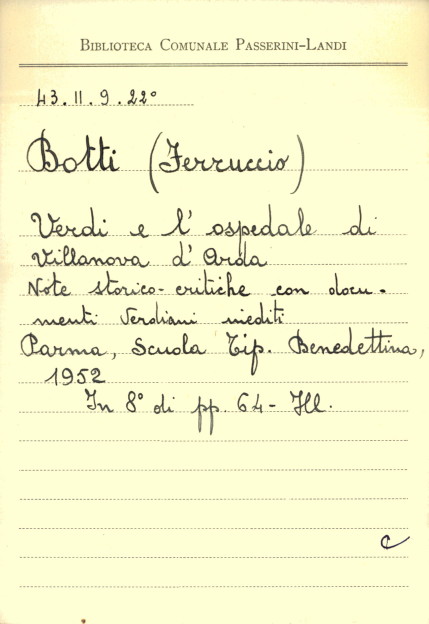 BIBLIOTECA COMUNALE PASSERINI-LANDI
43.II.9.22º
Botti (Ferruccio)
Verdi e l'ospedale di
Villanova d'Arda
Note storico-critiche con docu-
menti Verdiani inediti
Parma, Scuola Tip. Benedettina,
1952
In 8º di pp. 64 - Ill.
C